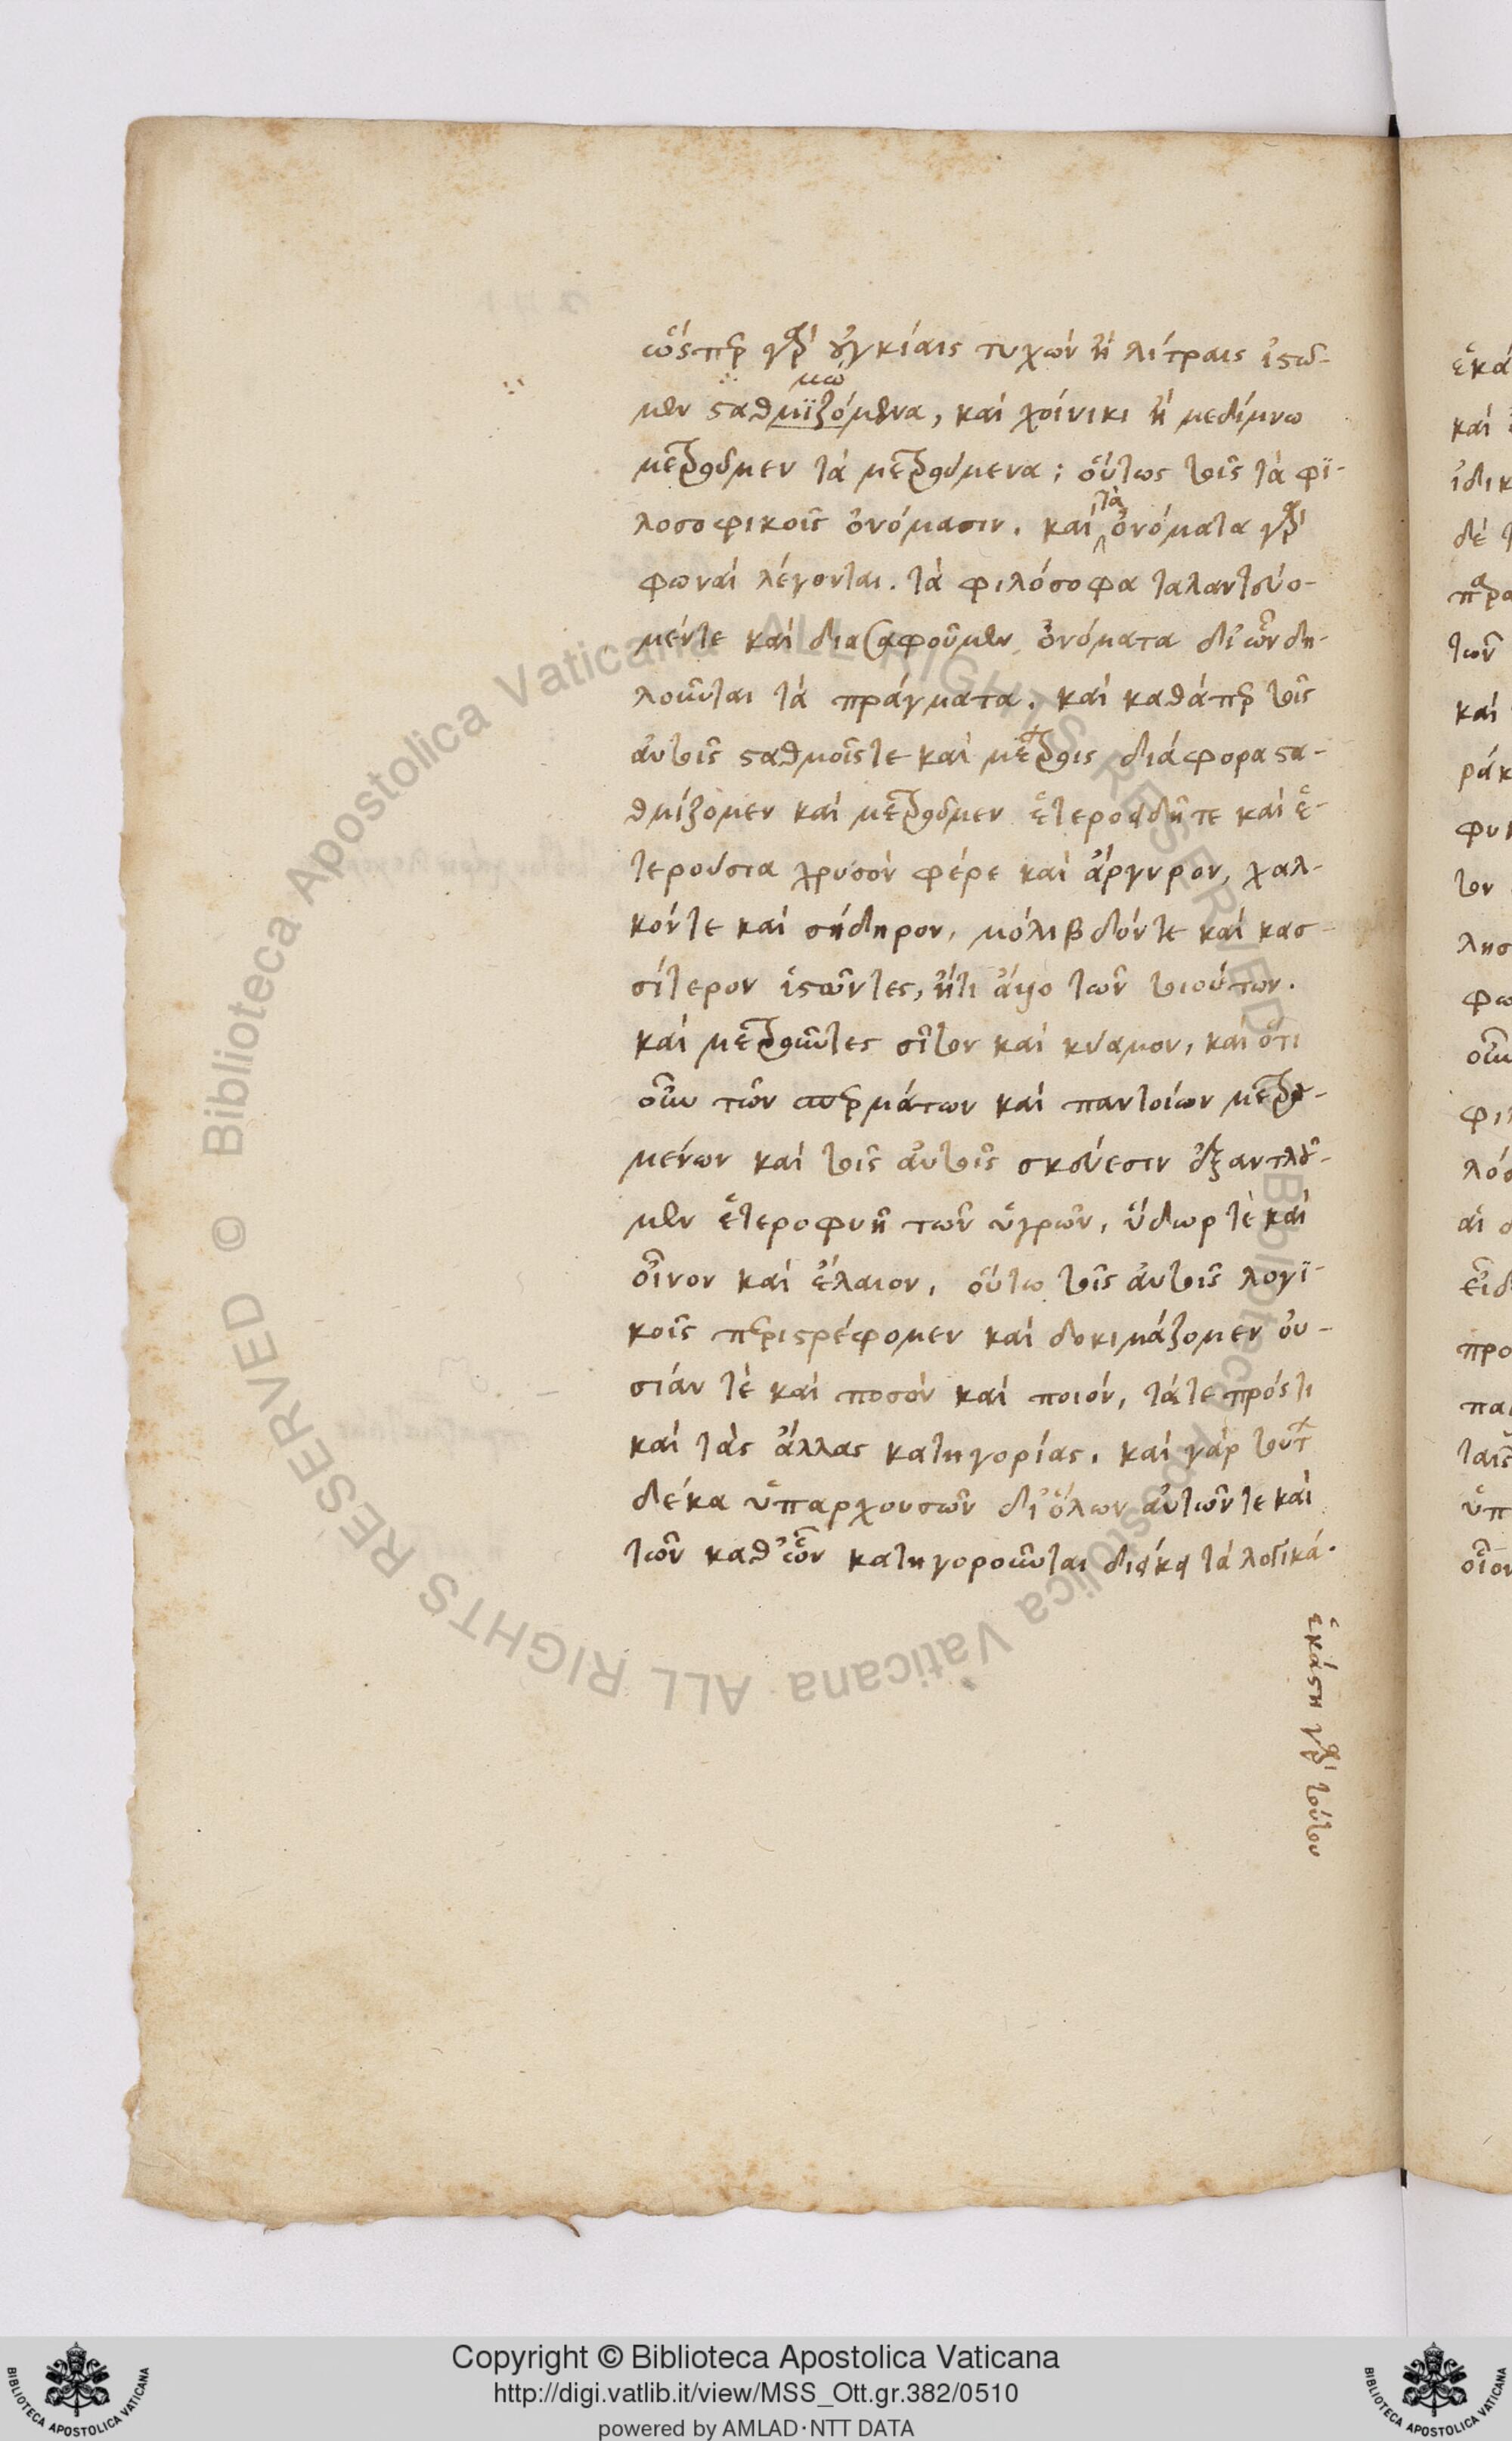 ὥσπερ γὰρ οὐγκίαις τυχὸν ἢ λίτραις ἱστῶ-
μεν σταθμϊζόμενα, καὶ χοίνικι ἢ μεδίμνω
μώ
μετροῦμεν τὰ μετρούμενα: οὕτως τοῖς τὰ φϊ-
λοσοφικοῖς ὀνόμασιν. καὶ τὰ ὀνόματα γὰρ
φωναὶ λέγονται. τὰ φιλόσοφα ταλαντευο-
μέντε καὶ διασαφοῦμεν ὀνόματα δι' ὧν δη-
λοῦνται τὰ πράγματα. καὶ καθάπερ τοῖς
αὐτοῖς σταθμοῖς τε καὶ μέτροις διάφορα στα-
θμίζομεν καὶ μετροῦμεν ἑτεροειδῆ τε καὶ ἑ-
τερούσια χρυσὸν φέρε καὶ ἄργυρον, χαλ-
κόν τε καὶ σήδηρον, μόλιβδόν τε καὶ κασ-
σίτερον ἱστῶντες, ἤτι ἄλλο τῶν τοιούτων.
καὶ μετροῦντες σῖτον καὶ κύαμον, καὶ ὅτι
οὖν τῶν σπερμάτων καὶ παντοίων μετρου-
μένων καὶ τοῖς αὐτοῖς σκεύεσιν ἐξαντλοῦ-
μεν ἑτεροφυῆ τῶν ὑγρῶν, ὕδωρ τὲ καὶ
οἶνον καὶ ἔλαιον, οὕτω τοῖς αὐτοῖς λογϊ-
κοῖς περιστρέφομεν καὶ δοκιμάζομεν οὐ-
σίαν τὲ καὶ ποσὸν καὶ ποιόν, τά τε πρός τι
καὶ τὰς ἄλλας κατηγορίας. καὶ γὰρ τούτων
δέκα ὑπαρχουσῶν δι' ὅλων αὐτῶν τε καὶ
τῶν καθ' ὧν κατηγοροῦνται διήκει τὰ λογικά.
ἑκάστη γὰρ τούτου
Copyright © Biblioteca Apostolica Vaticana
http://digi.vatlib.it/view/MSS_Ott.gr.382/0510
powered by AMLAD·NTT DATA
Biblioteca Apostolica Vaticana ALL RIGHTS RESERVED
Biblioteca Apostolica Vaticana ALL RIGHTS RESERVED ©
BIBLIOTECA APOSTOLICA VATICANA
BIBLIOTECA APOSTOLICA VATICANA